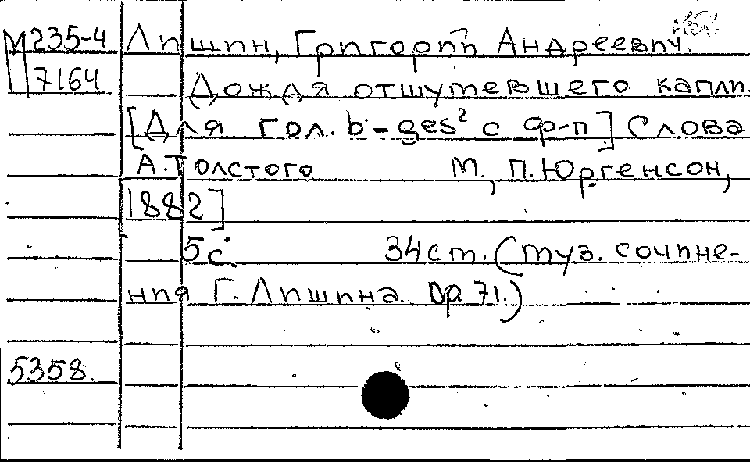 М 235-4 Лишин, Григорий Андреевич.
7164 Дождя отшумевшего капли.
[Для гол. b-ges² с ф-п] Слова
А.Толстого М., П.Юргенсон,
1882]
5с. 34см. (Муз. сочине-
ния Г. Лишина. Op. 71.)
5358.